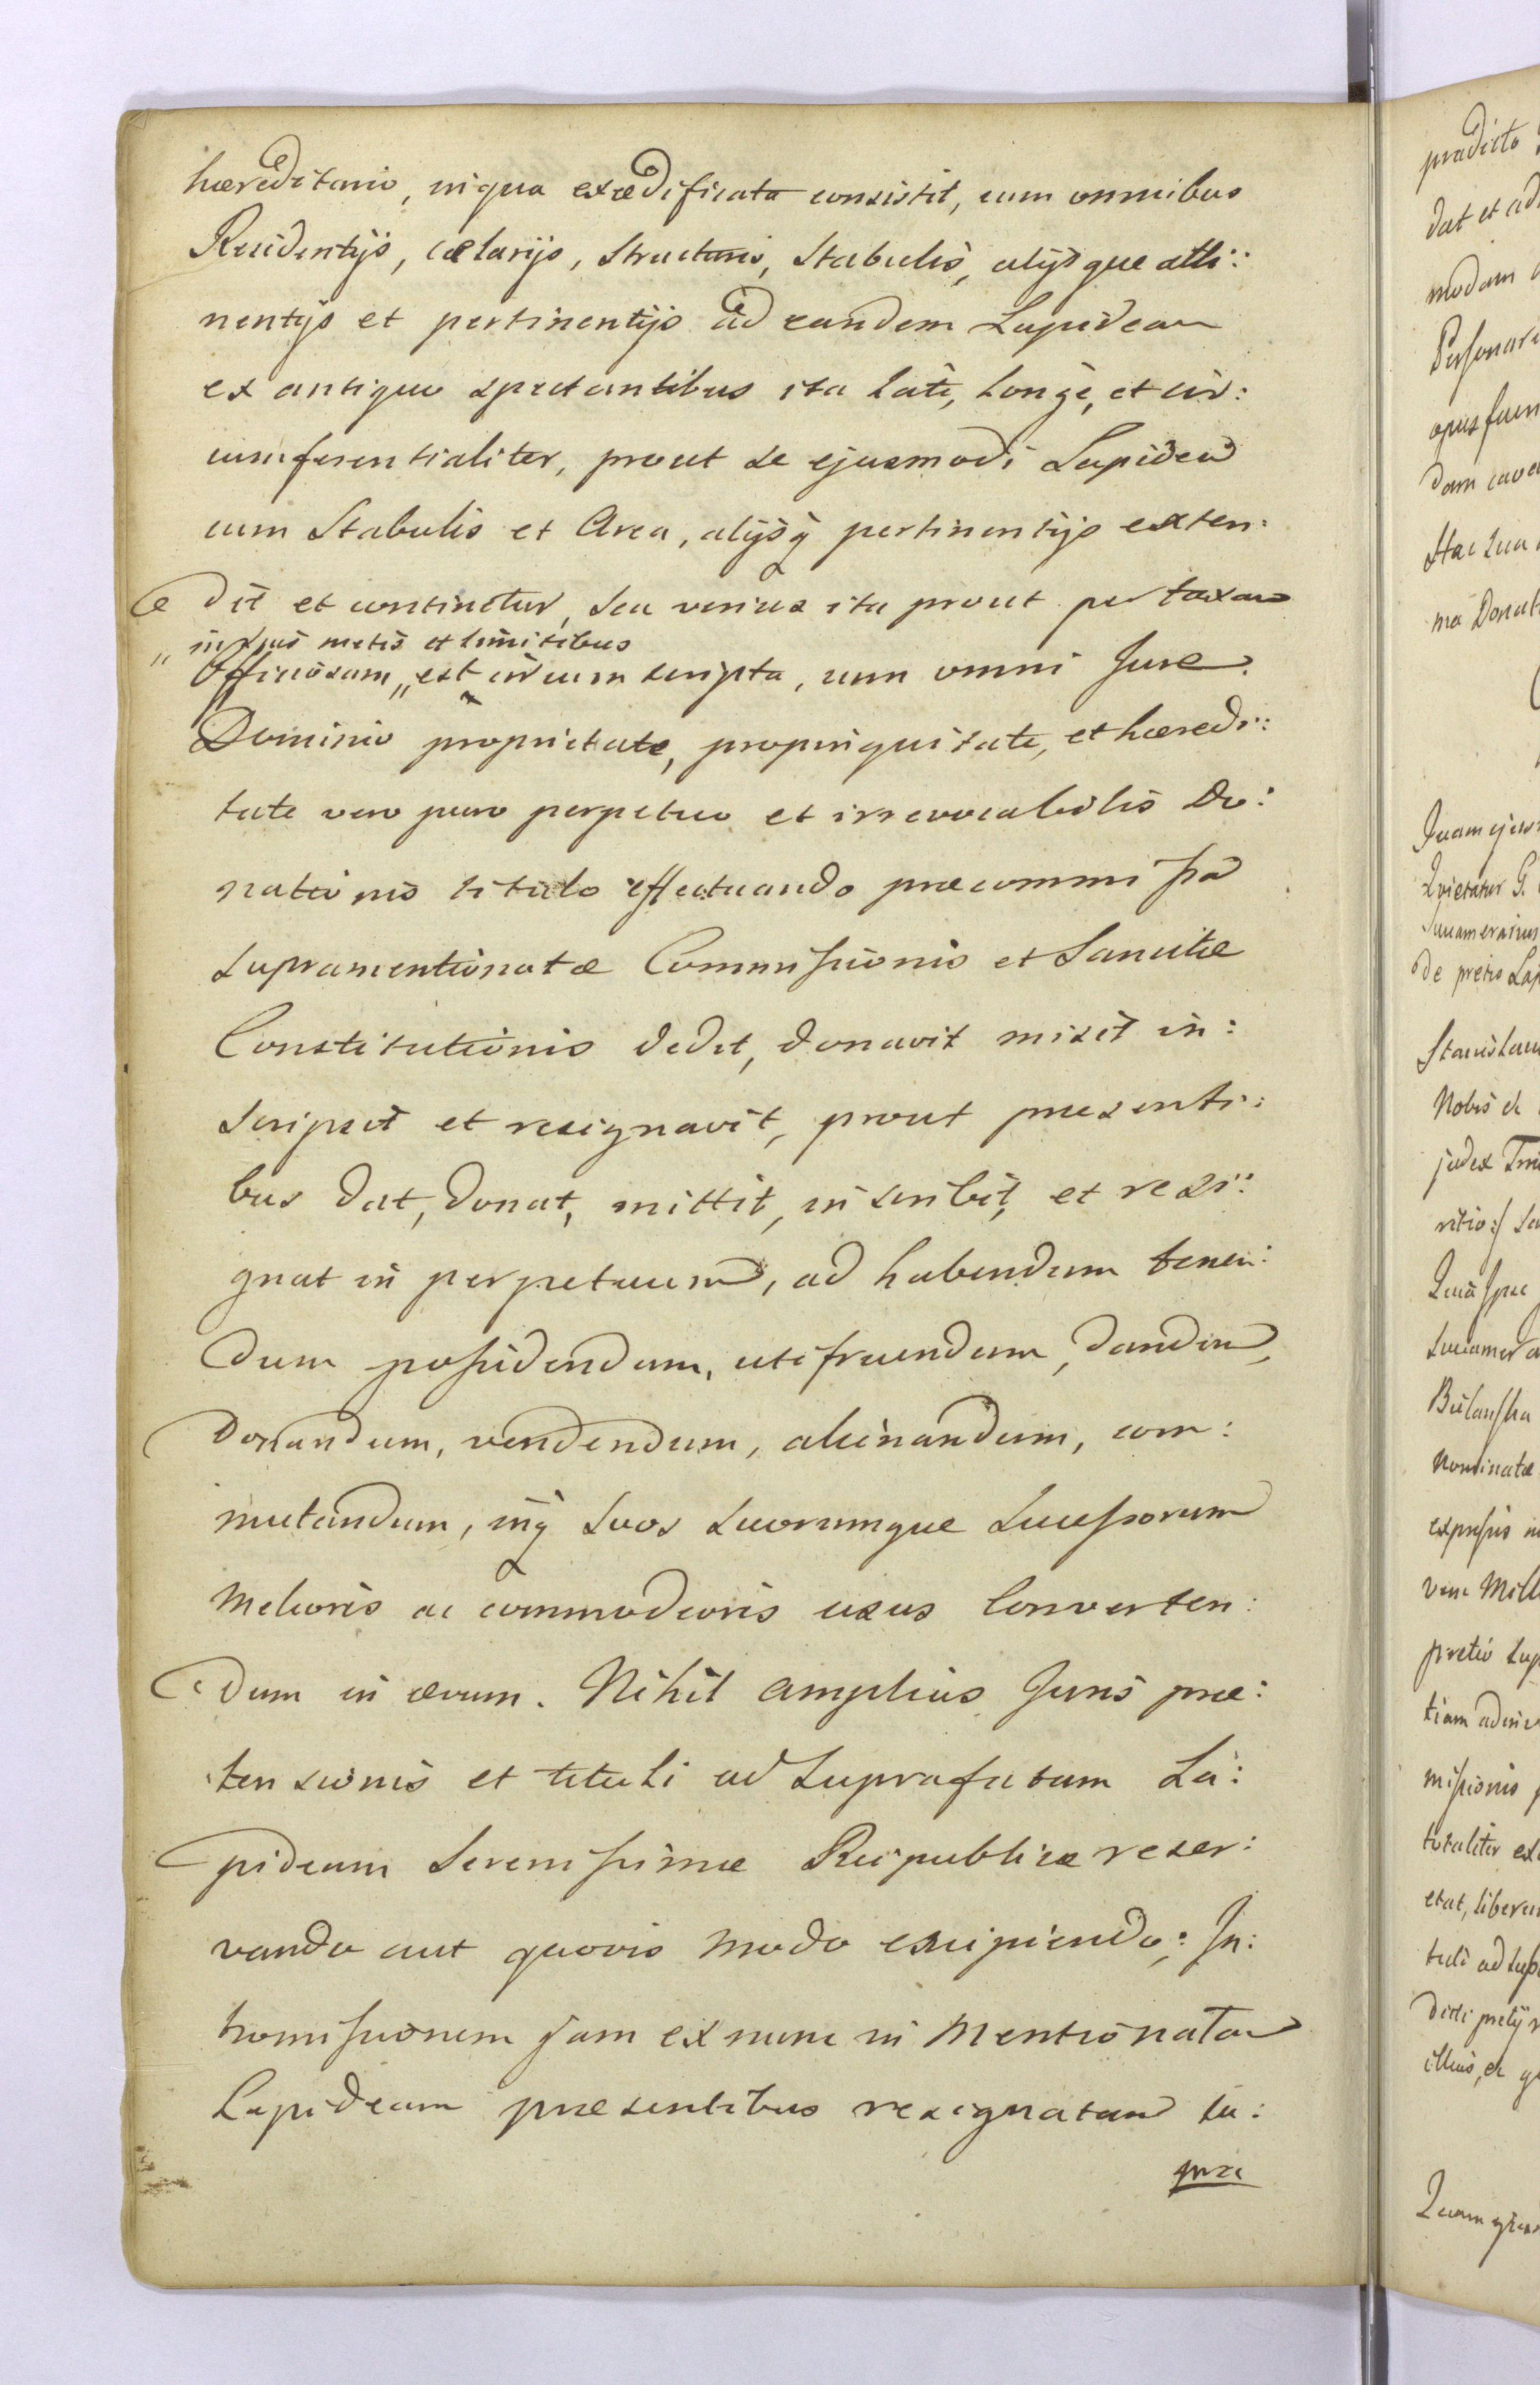 hæreditario, in qua exædificata consistit, cum omnibus
Residentijs, cælarijs, structuris, stabulis, alijsque atti:
nentijs et pertinentijs ad eandem Lapideam
ex antiquo spectantibus ita late, longe, et cir:
cumferentialiter, prout se ejusmodi Lapidea
cum Stabulis et Area, alijsq pertinentijs exten:
dit et continetur, seu verius ita prout per taxam
„ in suis metis et limitibus
Officiosam „ est circumscripta, cum omni Jure
Dominio proprietate, propinquitate, et hæredi:
tate vero puro perpetuo et irrevocabilis Do:
nationis titulo effectuando præcommissa
supramentionatæ Commissionis et Sancitæ
Constitutionis dedit, donavit misit in:
scripsit et resignavit, prout præsenti:
bus dat, donat, mittit, inscribit, et resi:
gnat in perpetuum, ad habendum tenen:
dum possidendum, utifruendum, dandum,
donandum, vendendum, alienandum, com:
mutandum, inq suos suorumque Successorum
melioris ac commodioris usus Converten:
dum in ævum. Nihil amplius Juris præ:
tensionis et tituli ad suprafatam La:
pideam Serenissimæ Reipublicæ reser:
vando aut quovis modo excipiendo; In:
tromissionem jam ex nunc in mentionatam
Lapideam præsentibus resignatam su:
præ
prædicto
dat et ad
modam
Personar
opus fuer
dam cave
stac sua
ma Donat
Quam ejus
Quietatur G.
de pretio Lap
Stanislau
Nobis et
judex
ritio:/ Su
Bielanska
Nominatæ
expressis in
vene Mill
pretio Lap
tiam adinv
missionis p
totaliter ex
etat, liberu
tuli ad sup
dicti pretij
illius, et q
Quam